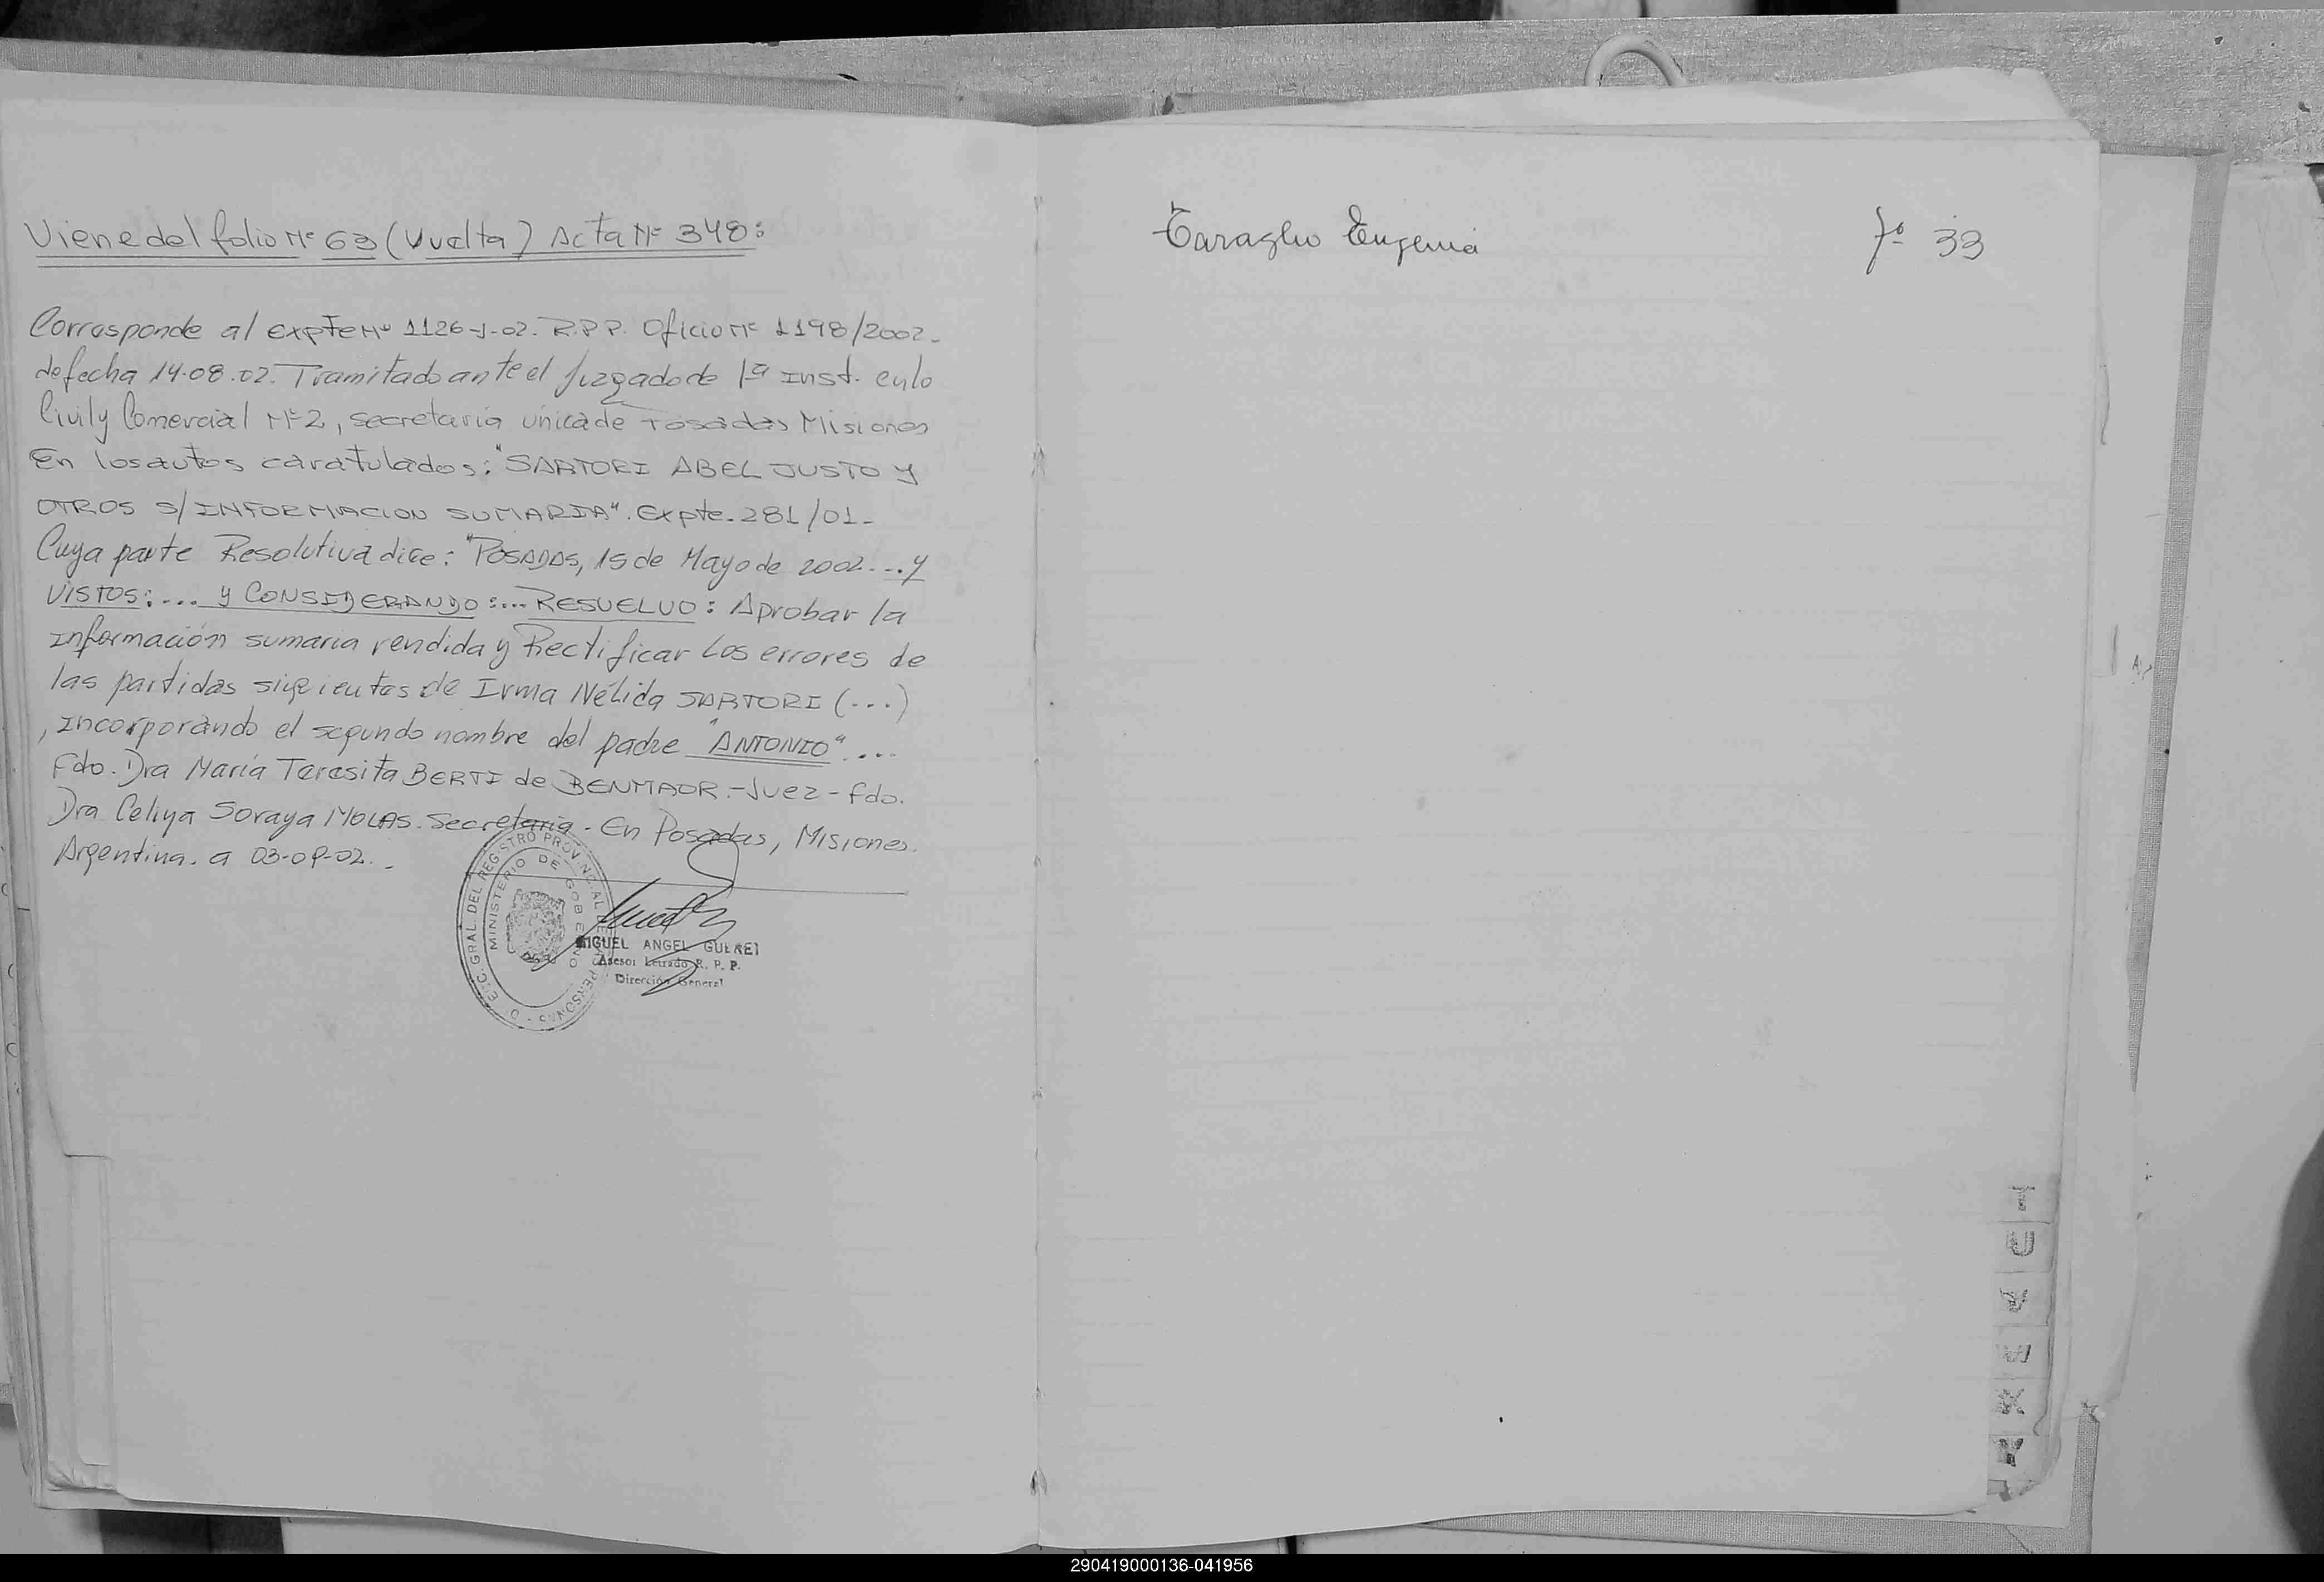 Viene del folio Nº 63 (Vuelta) Acta Nº 348:
Corresponde al expte Nº 1126-J-02. R.P.P. Oficio Nº 1198/2002.
de fecha 14.08.02. Tramitado ante el Juzgado de 1ª Inst. en lo
Civil y Comercial Nº 2, secretaria única de Posadas Misiones
En los autos caratulados: "SARTORI ABEL JUSTO Y
OTROS S/INFORMACION SUMARIA". Expte. 281/01-
Cuya parte Resolutiva dice: "POSADAS, 15 de Mayo de 2002... y
VISTOS:... y CONSIDERANDO:... RESUELVO: Aprobar la
Información sumaria rendida y Rectificar los errores de
las partidas siguientes de Irma Nélida SARTORI (...)
, incorporando el segundo nombre del padre "ANTONIO"....
Fdo. Dra María Teresita BERTI de BENMAOR.-Juez-fdo.
Dra Celina Soraya MOLAS. Secretaria. En Posadas, Misiones.
Argentina. a 03-09-02..
GRAL. DEL REGISTRO PROVINCIAL DE PERSONAS
MINISTERIO DE GOBIERNO
MIGUEL ANGEL
Asesor Letrado R. P. P.
Dirección General
Eugenia fº 33
T
U
V
W
X
Y
290419000136-041956